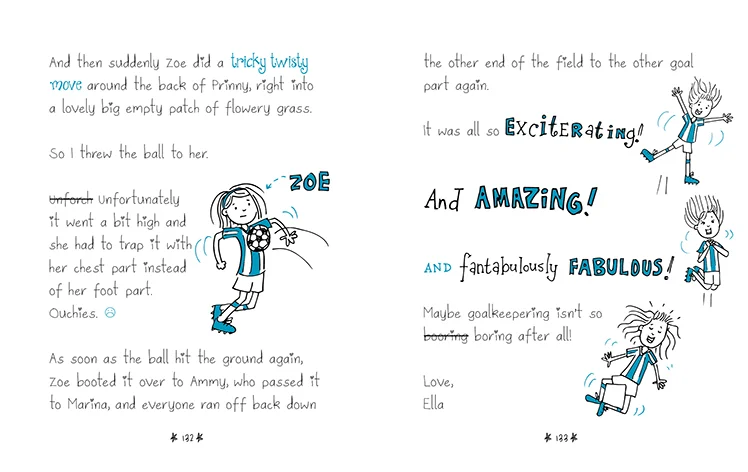 And then suddenly Zoe did a tricky twisty
move around the back of Prinny, right into
a lovely big empty patch of flowery grass.
So I threw the ball to her.
ZOE
Unforch Unfortunately
it went a bit high and
she had to trap it with
her chest part instead
of her foot part.
Ouchies. ☹
As soon as the ball hit the ground again,
Zoe booted it over to Ammy, who passed it
to Marina, and everyone ran off back down
132
the other end of the field to the other goal
part again.
It was all so EXCiTERating!
And AMAZING!
AND fantabulously FABULOUS!
Maybe goalkeepering isn't so
booring boring after all!
Love,
Ella
133